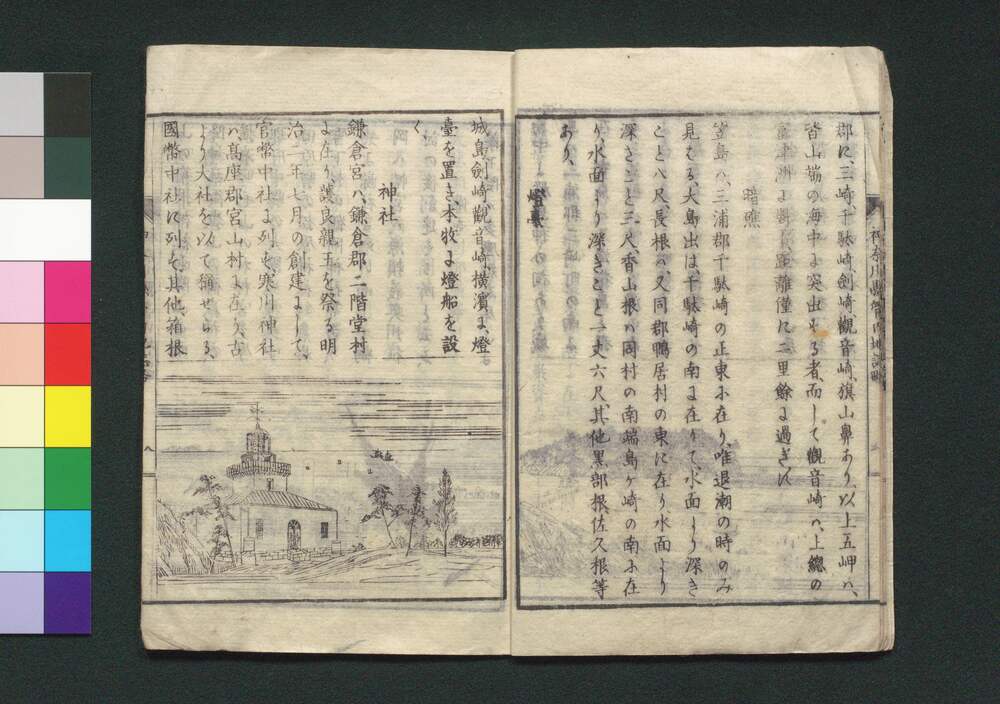 郡に、三崎、千駄崎、劔崎、觀音崎、旗山鼻あり、以上五岬ハ、
皆山嘴の海中よ突出せる者、而して觀音崎ハ、上總の
富津洲よ對し、距離僅に二里餘よ過ぎず
暗礁
笠島ハ、三浦郡千駄崎の正東に在り、唯退潮の時のみ
見はる、大島出は、千駄崎の南に在りて、水面より深き
こと八尺、長根ハ、又同郡鴨居村の東に在り水面より
深きこと三尺、香山根ハ同村の南端島ヶ崎の南に在
り、水面より深きこと一丈六尺、其他黒部根、佐久根等
あり、
燈臺
城島、劔崎、觀音崎、横濱よ、燈
臺を置き、本牧よ燈船を設
く
神社
鎌倉宮ハ、鎌倉郡二階堂村
よ在り、護良親王を祭る、明
治二年七月の創建にして、
官幣中社よ列す、寒川神社
ハ、高座郡宮山村よ在り、古
より大社を以て稱せらる、
國幣中社に列す、其他、箱根